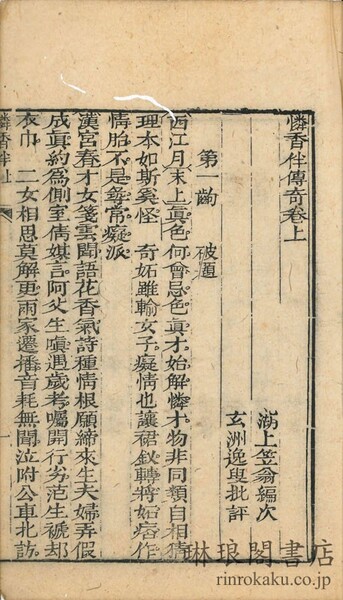 憐香伴傳奇卷上
湖上笠翁編次
玄洲逸叟批評
第一齣 破題
西江月末上真色何曾忌色真才始解憐才物非同類自相猜
理本如斯奚怪 奇妬雖輸女子癡情也讓裙釵轉將妬痞作
情胎不是尋常癡派
漢宮春才女箋雲聞語花香氣詩種情根願締來生夫婦弄假
成真約為側室倩媒言阿父生嗔遇歲考囑開行劣范生褫却
衣巾 二女相思莫解更兩家遷播音耗無聞泣附公車北訪
憐香伴 一
琳琅閣書店
rinrokaku.co.jp